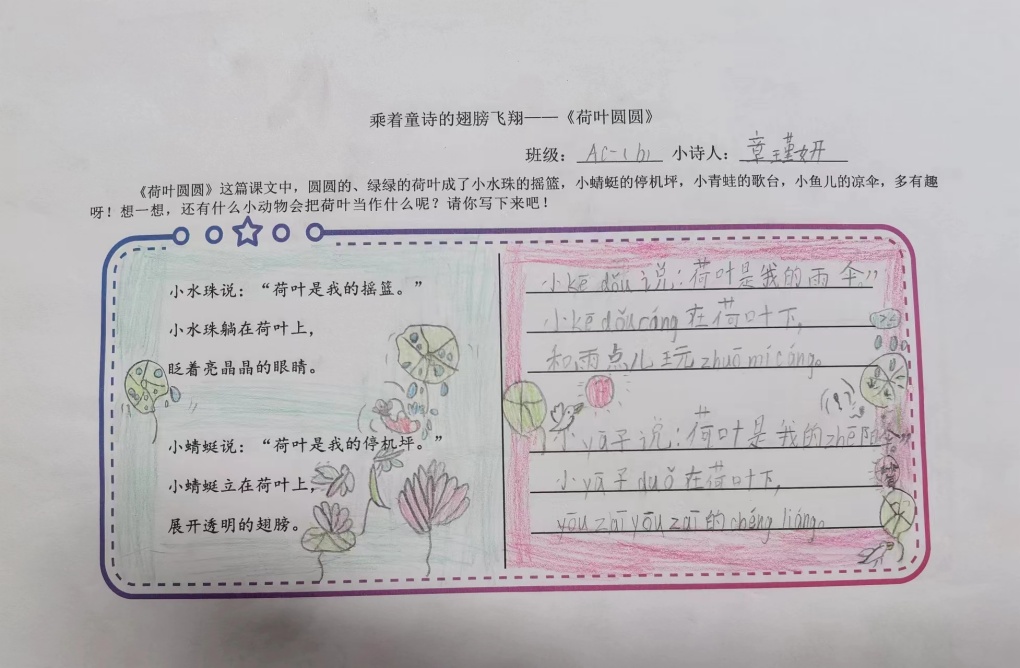 乘着童诗的翅膀飞翔——《荷叶圆圆》
班级： 小诗人：章瑾妍
《荷叶圆圆》这篇课文中，圆圆的、绿绿的荷叶成了小水珠的摇篮，小蜻蜓的停机坪，小青蛙的歌台，小鱼儿的凉伞，多有趣
呀！想一想，还有什么小动物会把荷叶当作什么呢？请你写下来吧！
小水珠说：“荷叶是我的摇篮。”
小水珠躺在荷叶上，
眨着亮晶晶的眼睛。
小蜻蜓说：“荷叶是我的停机坪。”
小蜻蜓立在荷叶上，
展开透明的翅膀。
小kē dǒu说：荷叶是我的雨伞。”
小kē dǒu cáng在荷叶下，
和雨点儿玩zhuō mí cáng。
小yā子说：荷叶是我的zhē阳伞”
小yā子duǒ在荷叶下，
yōu zāi yōu zāi的chéng liáng。